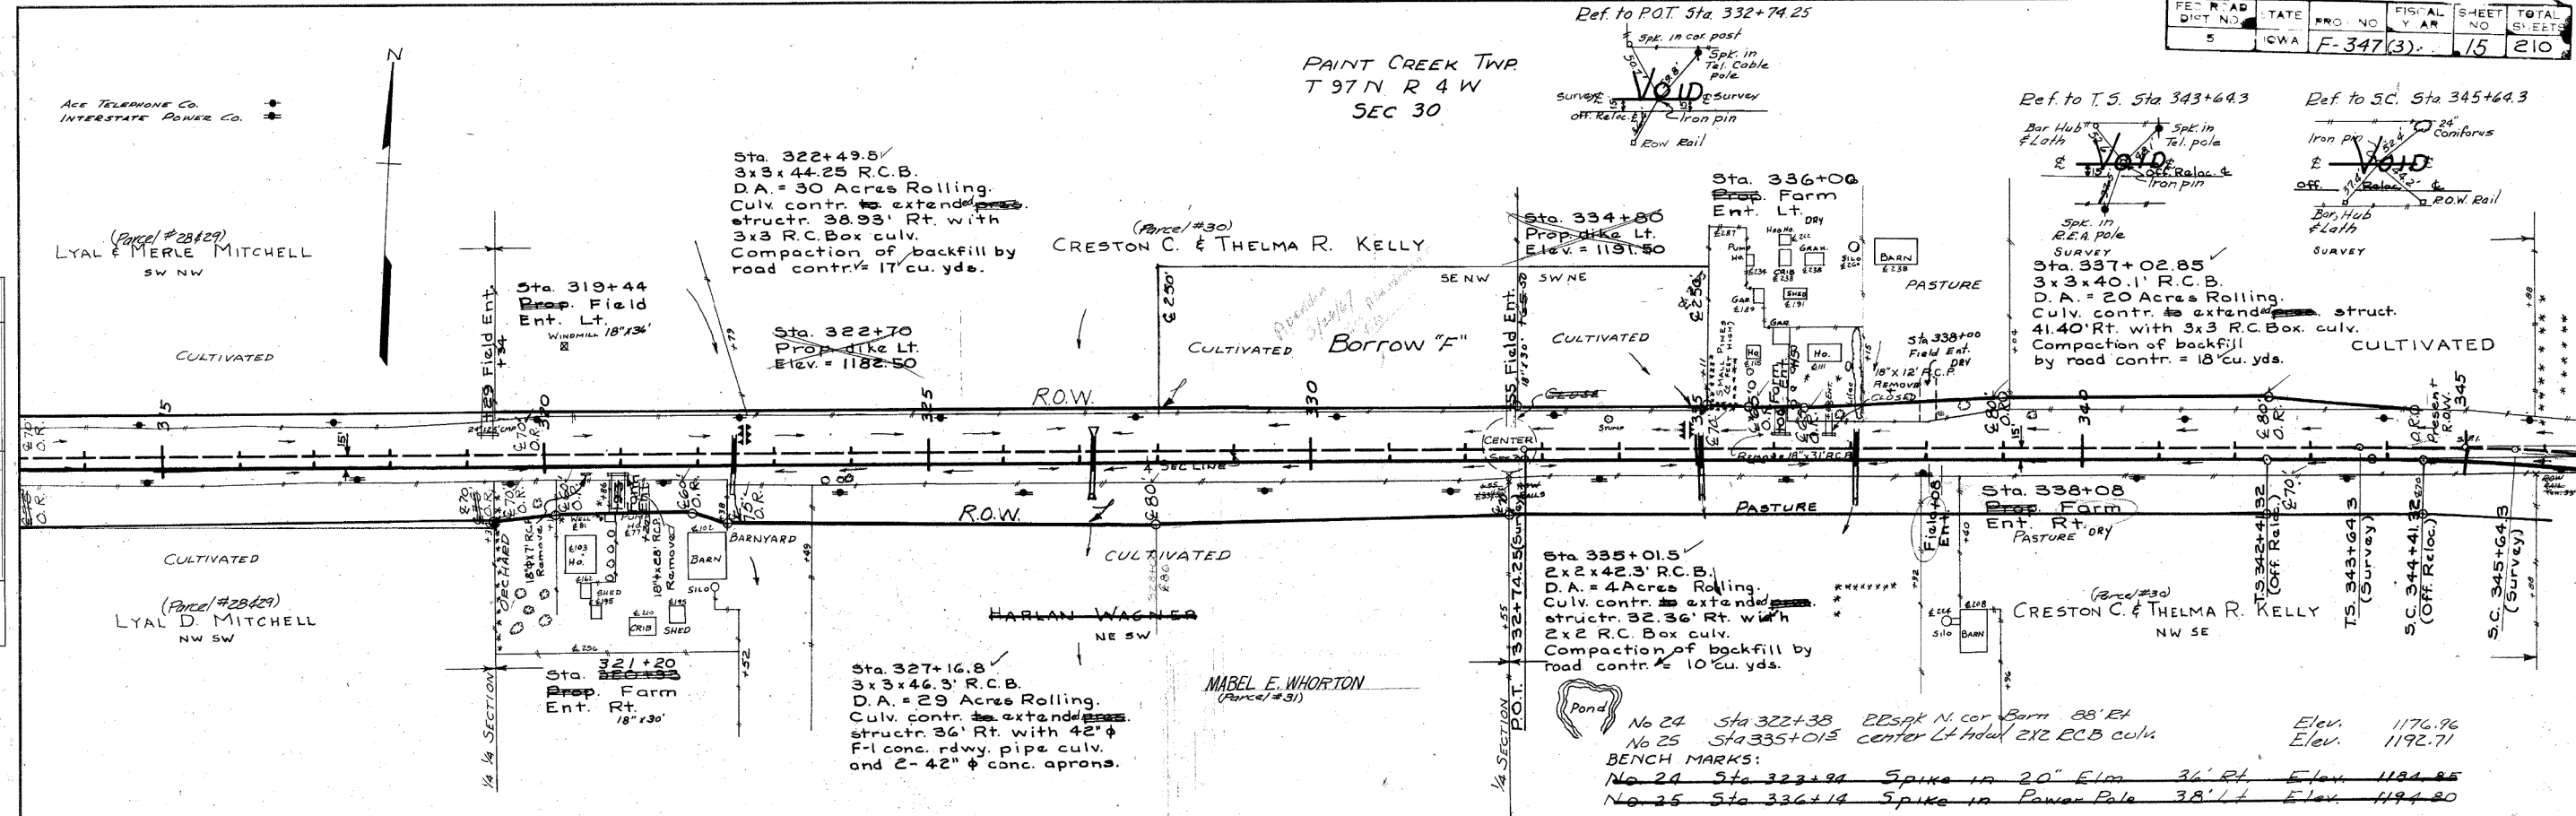 FED ROAD DIST NO.
STATE
PROJ NO
FISCAL YEAR
SHEET NO
TOTAL SHEETS
5
IOWA
F-347(3)
15
210
N
ACE TELEPHONE CO.
INTERSTATE POWER CO.
PAINT CREEK TWP.
T 97 N R 4 W
SEC 30
Ref. to P.O.T. Sta. 332+74.25
Spk. in cor. post
Spk. in
Tel. Cable
pole
VOID
Survey
℄ Survey
Off. Reloc. ℄
Iron pin
Row Rail
Ref. to T.S. Sta. 343+64.3
Bar Hub
& Lath
Spk. in
Tel. pole
VOID
Off. Reloc. ℄
Iron pin
Spk. in
R.E.A. pole
SURVEY
Ref. to S.C. Sta. 345+64.3
Iron pin
24"
Coniforus
VOID
Off. Reloc. ℄
Bar, Hub
& Lath
R.O.W. Rail
SURVEY
(Parcel #28&29)
LYAL & MERLE MITCHELL
SW NW
CULTIVATED
Sta. 322+49.8
3x3x44.25 R.C.B.
D.A. = 30 Acres Rolling.
Culv. contr. to extended pres.
structr. 38.93' Rt. with
3x3 R.C. Box culv.
Compaction of backfill by
road contr. = 17 cu. yds.
Sta. 319+44
Prop. Field
Ent. Lt.
18"x36'
WINDMILL
Sta. 322+70
Prop. dike Lt.
Elev. = 1182.50
(Parcel #30)
CRESTON C. & THELMA R. KELLY
SE NW
SW NE
Sta. 334+80
Prop. dike Lt.
Elev. = 1191.50
Sta. 336+00
Prop. Farm
Ent. Lt.
DRY
CULTIVATED
Borrow "F"
CULTIVATED
℄ 250'
℄ 250'
BARN
℄ 238
PASTURE
Sta. 338+00
Field Ent.
DRY
18" x 12' R.C.P.
REMOVE
CLOSED
Sta. 337+02.85
3x3x40.1' R.C.B.
D.A. = 20 Acres Rolling.
Culv. contr. to extended pres. struct.
41.40' Rt. with 3x3 R.C. Box. culv.
Compaction of backfill
by road contr. = 18 cu. yds.
CULTIVATED
R.O.W.
315
320
325
330
335
340
345
+29 Field Ent.
+34
+55 Field Ent.
CLOSE
STUMP
CENTER
¼ SEC LINE
Remove 18"x31' R.C.P.
Present
R.O.W.
R.O.W.
PASTURE
CULTIVATED
(Parcel #28&29)
LYAL D. MITCHELL
NW SW
ORCHARD
18"Φx7' R.C.P.
Remove
WELL
℄ 103
Ho.
SHED
℄ 195
CRIB
SHED
18"Φx28' R.C.P.
Remove
BARN
SILO
BARNYARD
℄ 256
321+20
Sta. 320+93
Prop. Farm
Ent. Rt.
18"x30'
¼ ¼ SECTION
+52
+49
CULTIVATED
HARLAN WAGNER
NE SW
Sta. 327+16.8
3x3x46.3' R.C.B.
D.A. = 29 Acres Rolling.
Culv. contr. to extended pres.
structr. 36' Rt. with 42" ϕ
F-1 conc. rdwy. pipe culv.
and 2-42" ϕ conc. aprons.
MABEL E. WHORTON
(Parcel #31)
¼ SECTION
P.O.T. 332+74.25 (Survey)
Sta 335+01.5
2x2x42.3' R.C.B.
D.A. = 4 Acres Rolling.
Culv. contr. to extended pres.
structr. 32.36' Rt. with
2x2 R.C. Box culv.
Compaction of backfill by
road contr. = 10 cu. yds.
Field Ent.
+08
Sta. 338+08
Prop. Farm
Ent. Rt.
PASTURE DRY
Silo
BARN
(Parcel #30)
CRESTON C. & THELMA R. KELLY
NW SE
T.S. 342+41.32
(Off. Reloc.)
T.S. 343+64.3
(Survey)
S.C. 344+41.32
(Off. Reloc.)
S.C. 345+64.3
(Survey)
Pond
No 24 Sta 322+38 RRspk N. cor Barn 88' Rt Elev. 1176.96
No 25 Sta 335+01.5 center Lt hdwl 2x2 RCB culv. Elev. 1192.71
BENCH MARKS:
No. 24 Sta 323+94 Spike in 20" Elm 36' Rt. Elev. 1184.85
No. 25 Sta 336+14 Spike in Power Pole 38' Lt Elev. 1194.80